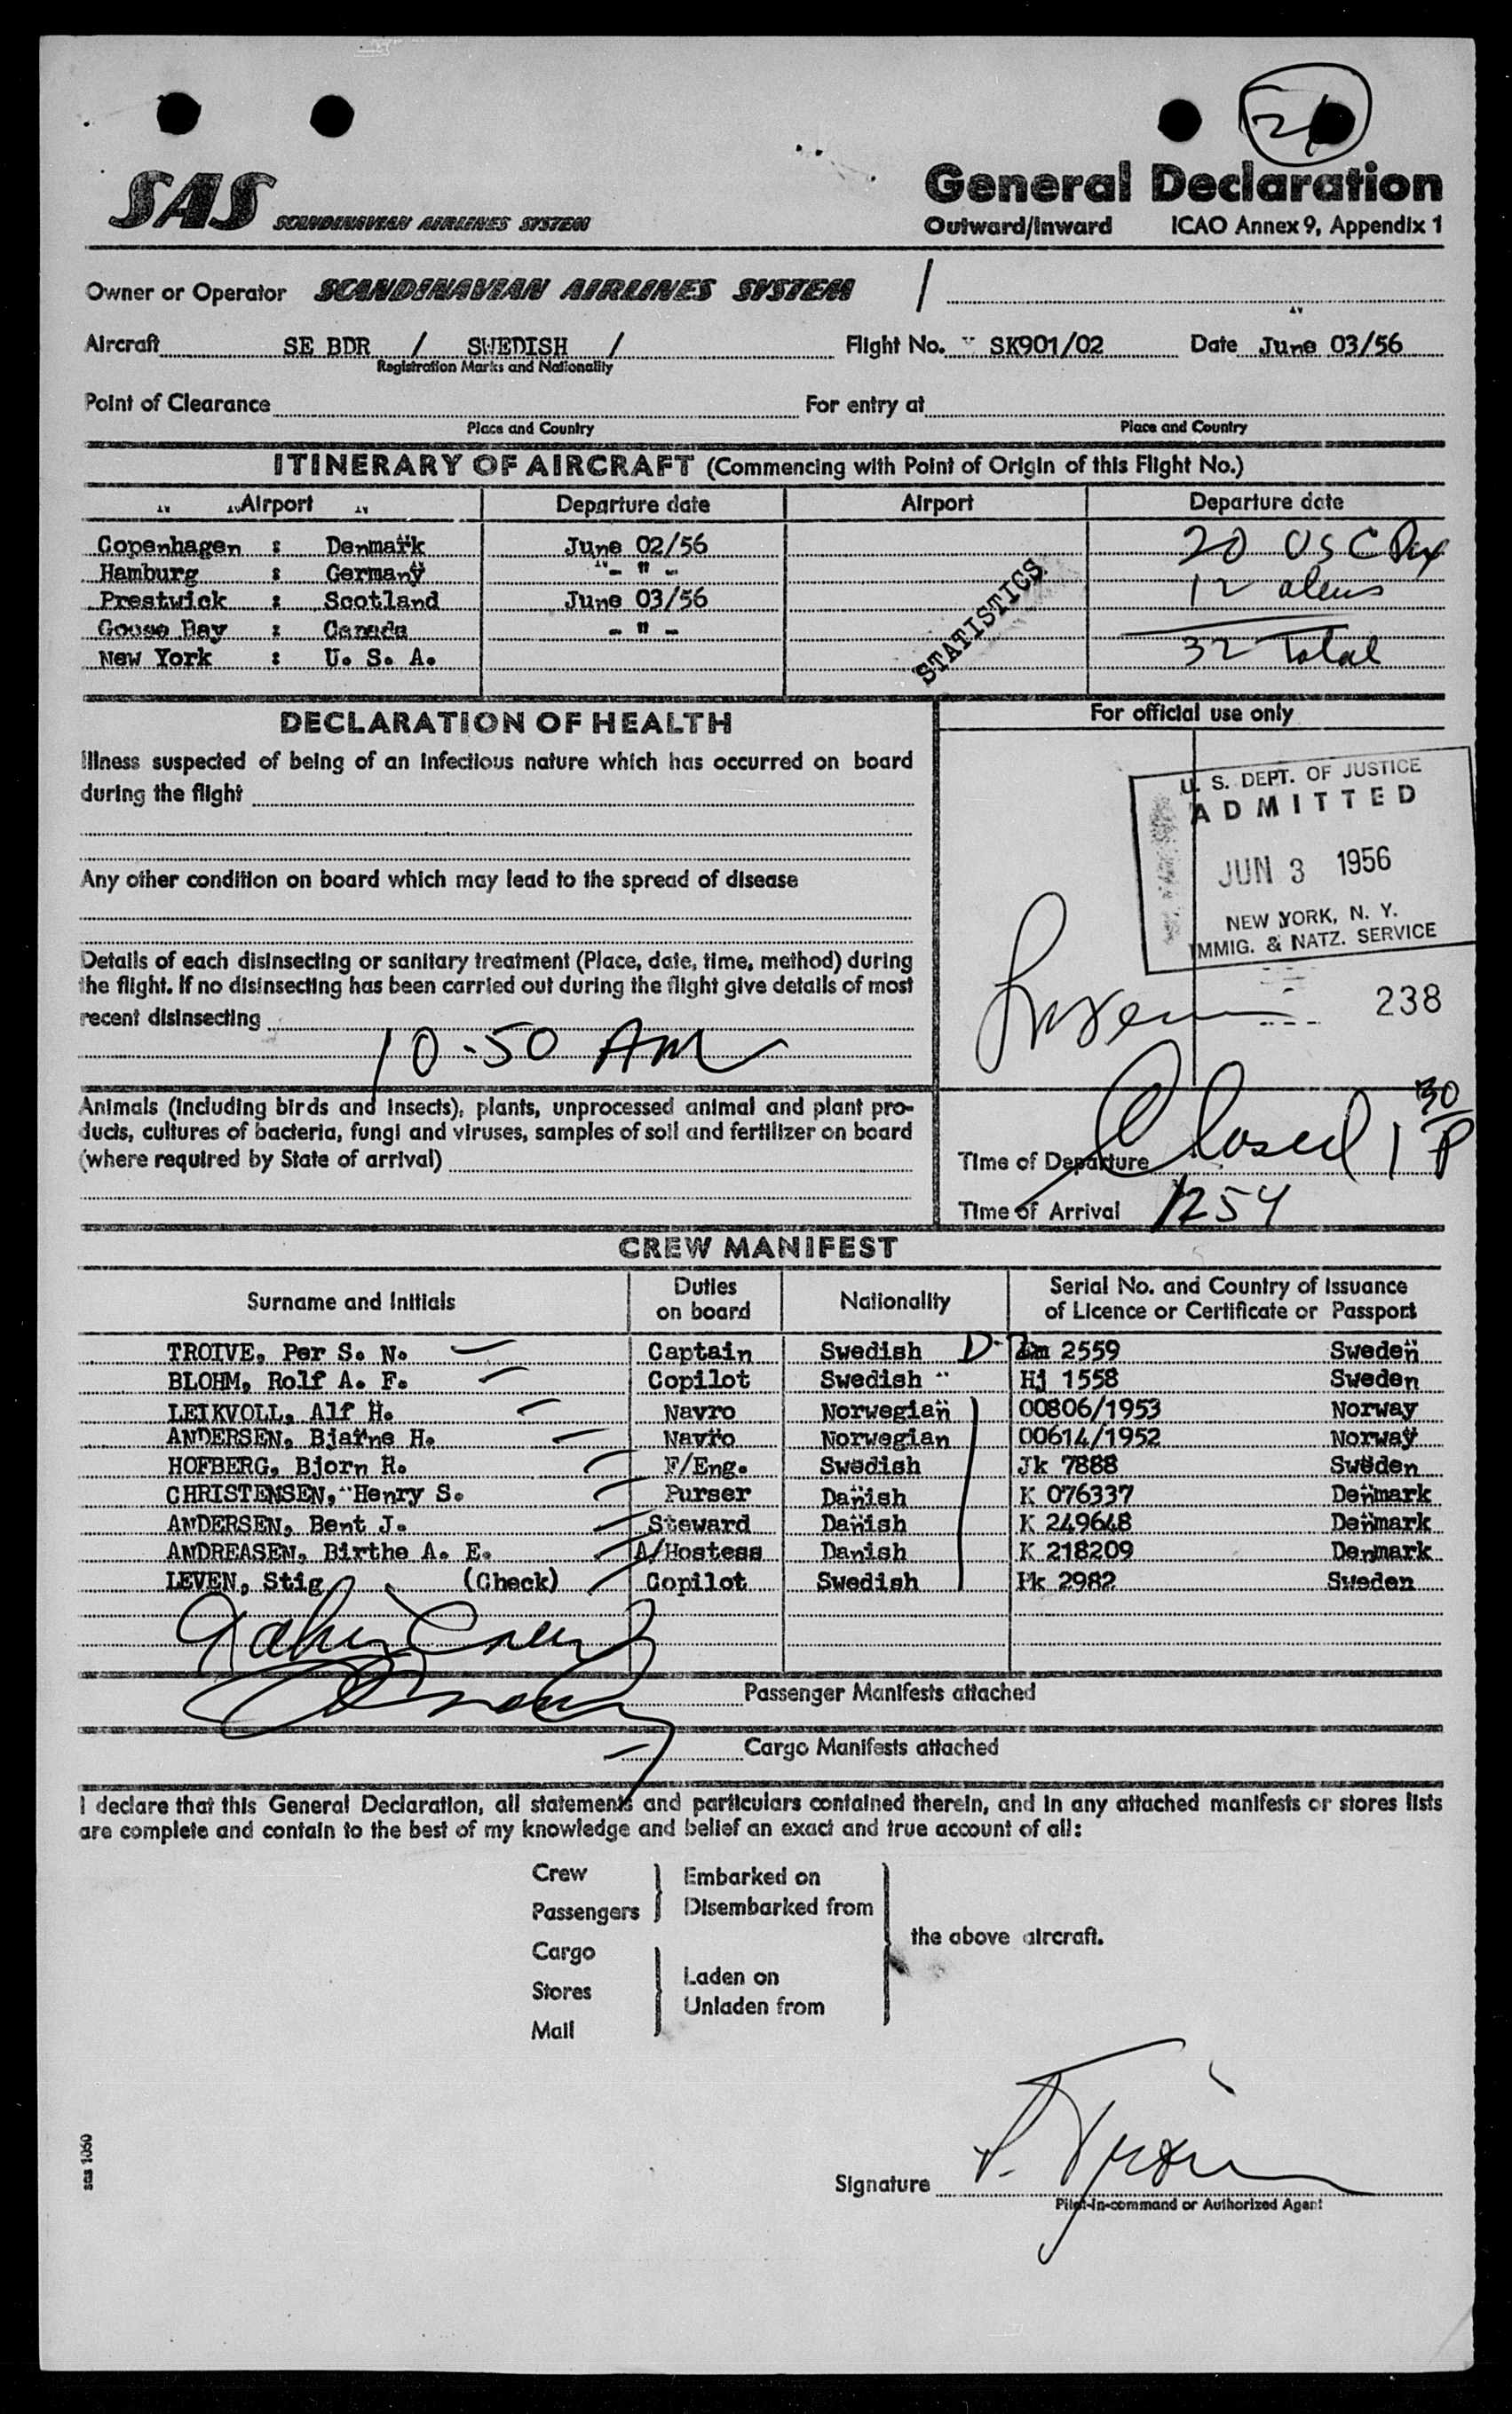 21
SAS SCANDINAVIAN AIRLINES SYSTEM
General Declaration
Outward/Inward ICAO Annex 9, Appendix 1
Owner or Operator SCANDINAVIAN AIRLINES SYSTEM /
Aircraft SE BDR / SWEDISH / Flight No. SK901/02 Date June 03/56
Registration Marks and Nationality
Point of Clearance For entry at
Place and Country Place and Country
ITINERARY OF AIRCRAFT (Commencing with Point of Origin of this Flight No.)
Airport Departure date Airport Departure date
Copenhagen : Denmark June 02/56 20 USC
Hamburg : Germany - " - 12 aliens
Prestwick : Scotland June 03/56
Goose Bay : Canada - " - 32 Total
New York : U. S. A.
STATISTICS
DECLARATION OF HEALTH
Illness suspected of being of an infectious nature which has occurred on board
during the flight
Any other condition on board which may lead to the spread of disease
Details of each disinsecting or sanitary treatment (Place, date, time, method) during
the flight. If no disinsecting has been carried out during the flight give details of most
recent disinsecting
10.50 AM
Animals (including birds and insects), plants, unprocessed animal and plant pro-
ducts, cultures of bacteria, fungi and viruses, samples of soil and fertilizer on board
(where required by State of arrival)
For official use only
U. S. DEPT. OF JUSTICE
ADMITTED
JUN 3 1956
NEW YORK, N. Y.
IMMIG. & NATZ. SERVICE
238
Time of Departure Closed 1 30 P
Time of Arrival 1254
CREW MANIFEST
Surname and Initials Duties on board Nationality Serial No. and Country of Issuance of Licence or Certificate or Passport
TROIVE, Per S. N. Captain Swedish D- Zm 2559 Sweden
BLOHM, Rolf A. F. Copilot Swedish Hj 1558 Sweden
LEIKVOLL, Alf H. Navro Norwegian 00806/1953 Norway
ANDERSEN, Bjarne H. Navro Norwegian 00614/1952 Norway
HOFBERG, Bjorn R. F/Eng. Swedish Jk 7888 Sweden
CHRISTENSEN, Henry S. Purser Danish K 076337 Denmark
ANDERSEN, Bent J. Steward Danish K 249648 Denmark
ANDREASEN, Birthe A. E. A/Hostess Danish K 218209 Denmark
LEVEN, Stig (Check) Copilot Swedish Pk 2982 Sweden
Passenger Manifests attached
Cargo Manifests attached
I declare that this General Declaration, all statements and particulars contained therein, and in any attached manifests or stores lists
are complete and contain to the best of my knowledge and belief an exact and true account of all:
Crew Embarked on
Passengers Disembarked from
the above aircraft.
Cargo
Stores Laden on
Unladen from
Mail
sas 1060
Signature
Pilot-in-command or Authorized Agent